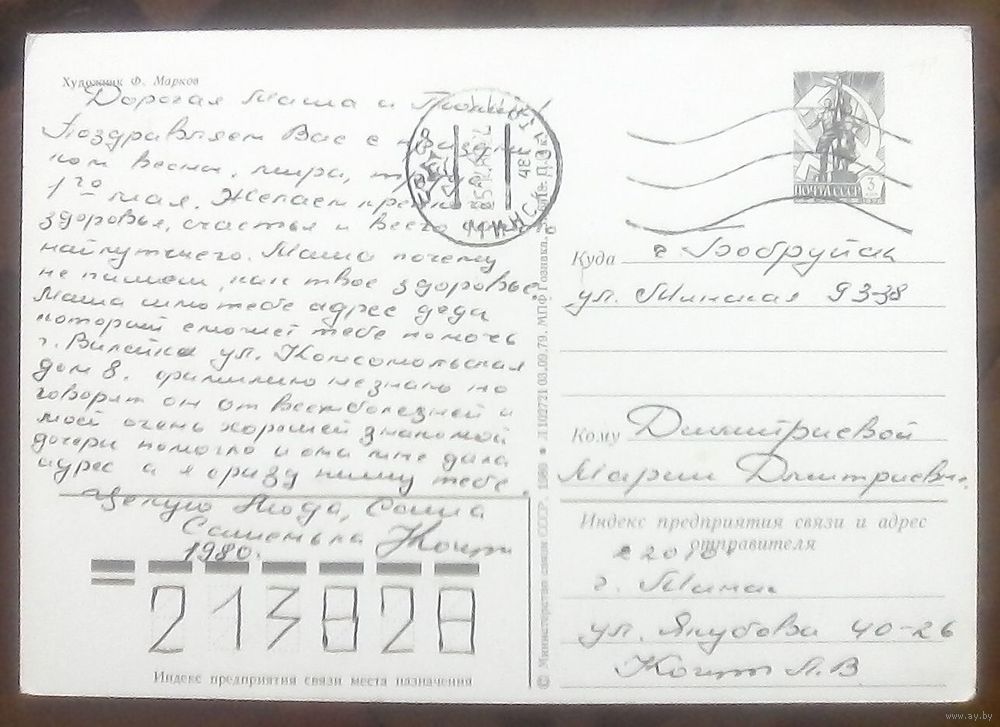 Художник Ф. Марков
Дорогая Маша и
Поздравляем Вас с
ком весны, мира,
1го мая. Желаем
здоровья, счастья и всего
найлучшего. Маша почему
не пишеш, как твое здоровье.
Маша шлю тебе адрес деда
который сможет тебе помочь
г. Вилейка ул. Комсомольская
дом 8. фамилию не знаю но
говорят он от всех болезней и
моей очень хорошей знакомой
дочери помогло и она мне дала
адрес а я сразу пишу тебе.
Целую Люда, Саша
Сашенька
1980.
213828
Индекс предприятия связи места назначения
МИНСК
ПОЧТА СССР 3
Куда г. Бобруйск
ул. Минская 93-38
Кому Дмитриевой
Марии Дмитриевн.
Индекс предприятия связи и адрес
отправителя
г. Минск
ул. Якубова 40-26
Л.В
© Министерство связи СССР. 1980 • Л 102721 03.09.79. МПФ Гознака.
www.ay.by